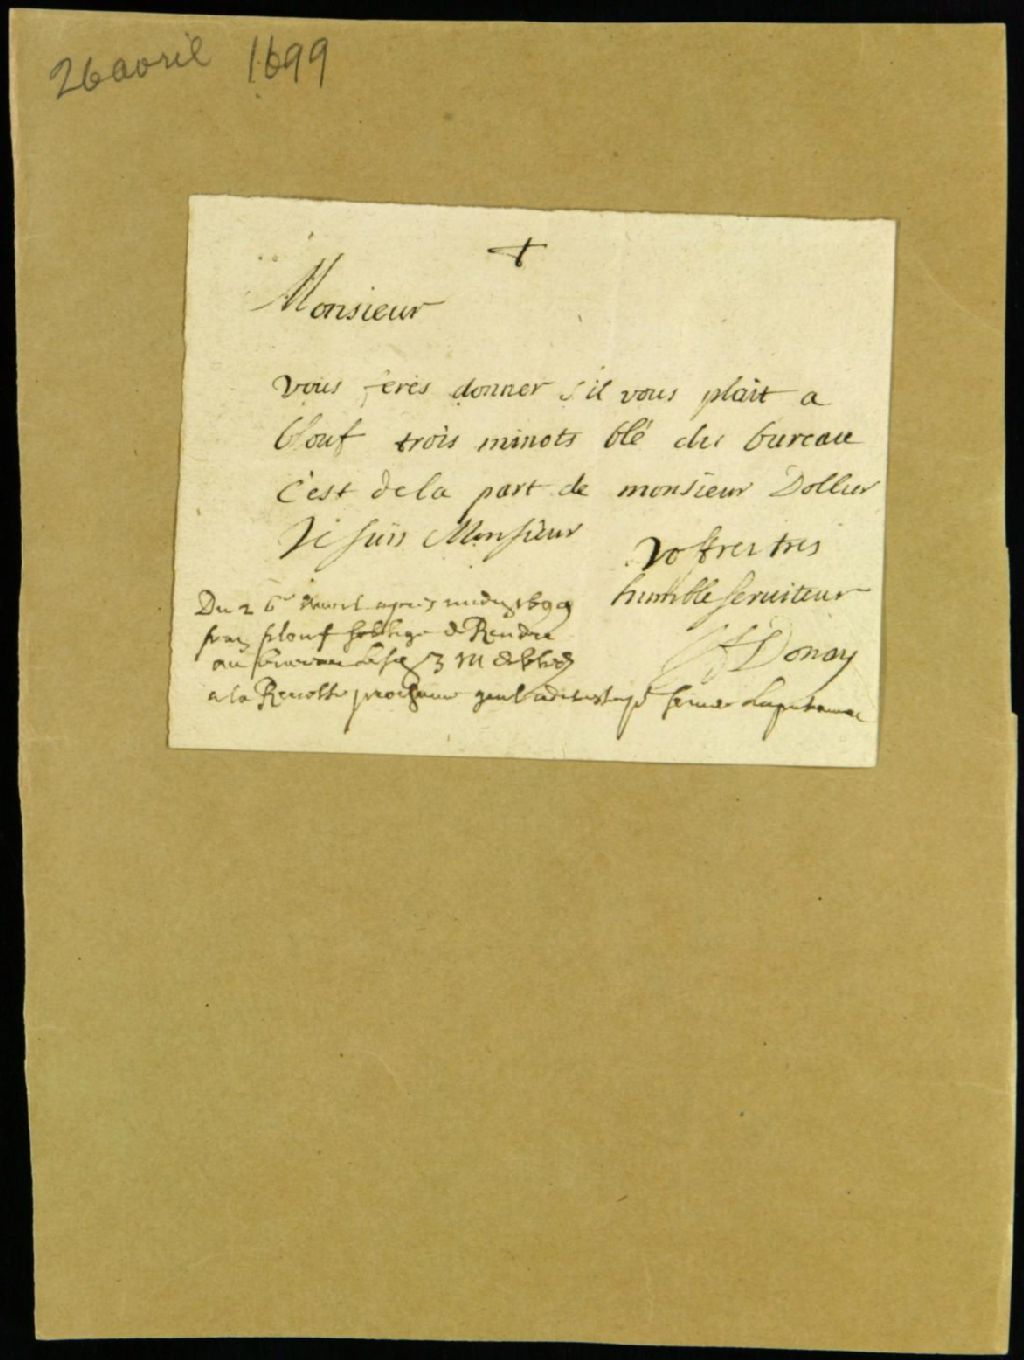 26 avril 1699
+
Monsieur
vous ferés donner s'il vous plait a
blouf trois minots blé du bureau
C'est de la part de monsieur Dollier
Je suis Monsieur
Vostre tres
humble serviteur
Donay
Du 26e avril apres midy 1699
fran plouf soblige de Rendre
au bureau 3 m de bled
a la Recolte prochaine